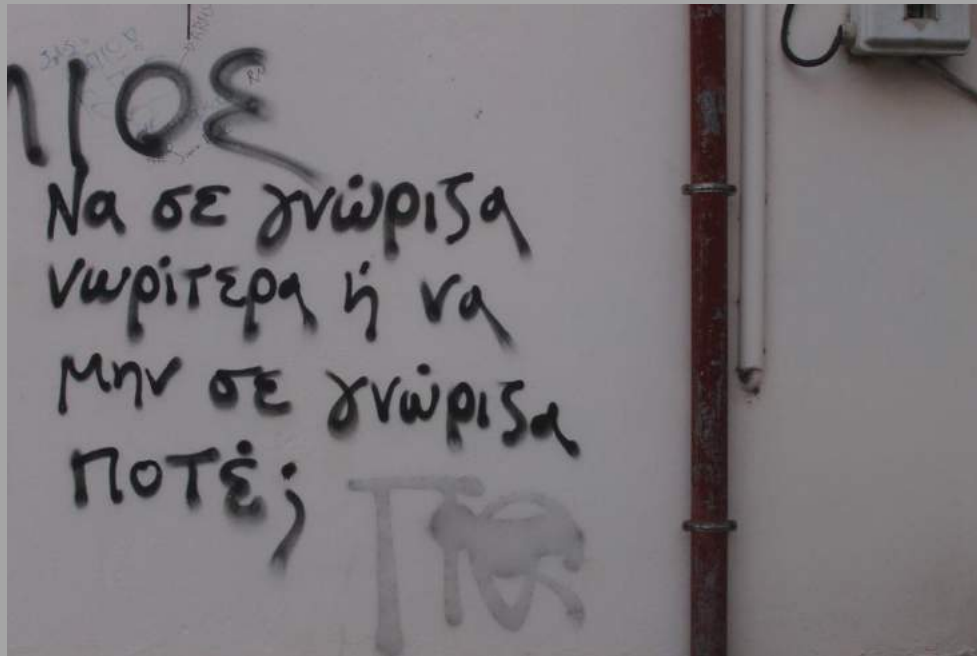 ΠΙΟΣ
Να σε γνώριζα
νωρίτερα ή να
μην σε γνώριζα
ποτέ;